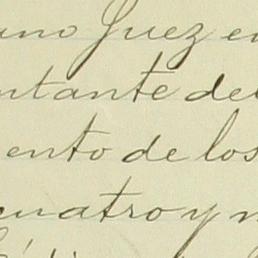 ano Juez en
ntante del
ento de los
cuatro y n